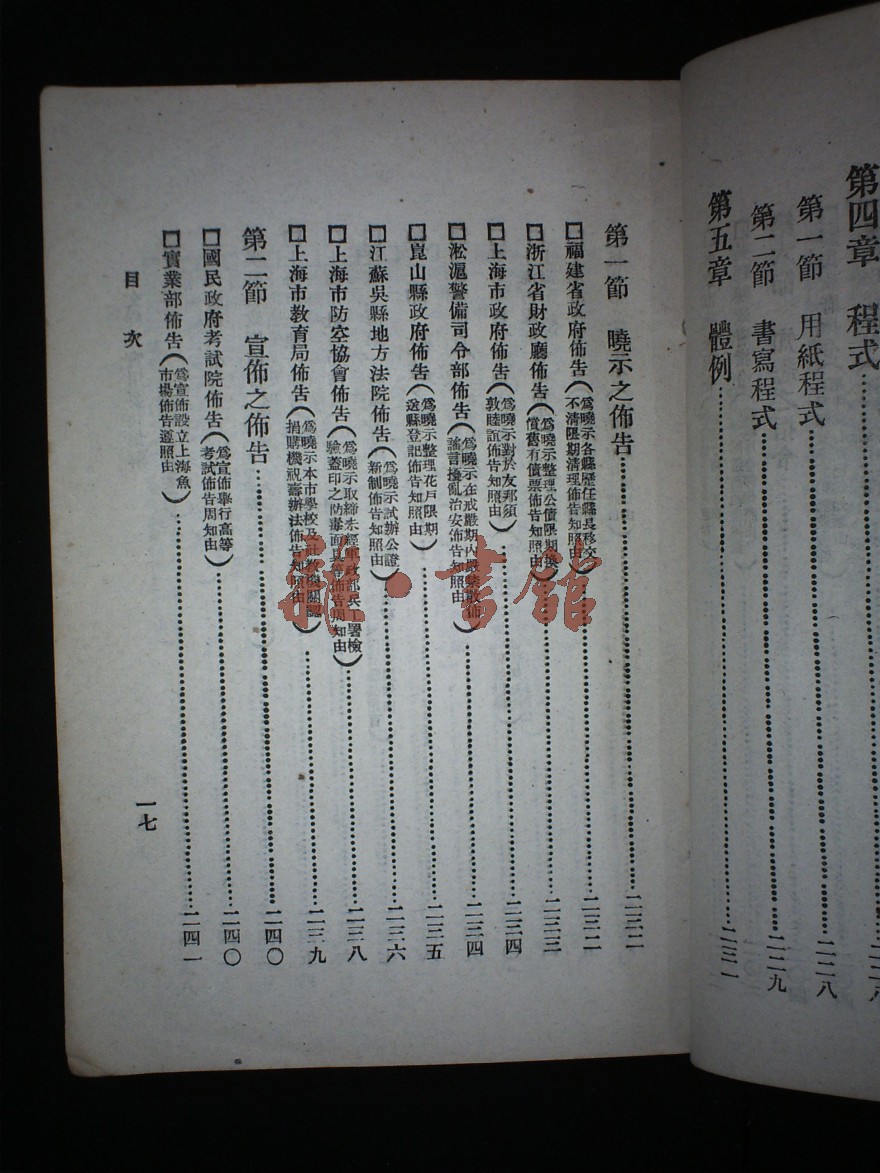 第四章　程式…………二二八
第一節　用紙程式…………二二八
第二節　書寫程式…………二二九
第五章　體例…………二三一
第一節　曉示之佈告…………二三二
□福建省政府佈告（爲曉示各縣歷任縣長移交不清限期清理佈告知照由）…………二三二
□浙江省財政廳佈告（爲曉示整理公債限期換償舊有債票佈告知照由）…………二三三
□上海市政府佈告（爲曉示對於友邦須敦睦誼佈告知照由）…………二三四
□淞滬警備司令部佈告（爲曉示在戒嚴期內嚴禁散佈謠言擾亂治安佈告知照由）…………二三四
□崑山縣政府佈告（爲曉示整理花戶限期送縣登記佈告知照由）…………二三五
□江蘇吳縣地方法院佈告（爲曉示試辦公證新制佈告知照由）…………二三六
□上海市防空協會佈告（爲曉示取締未經軍政部兵工署檢驗蓋印之防毒面具等佈告周知由）…………二三八
□上海市教育局佈告（爲曉示本市學校及社教機關認捐購機祝壽辦法佈告知照由）…………二三九
第二節　宣佈之佈告…………二四〇
□國民政府考試院佈告（爲宣佈舉行高等考試佈告周知由）…………二四〇
□實業部佈告（爲宣佈設立上海魚市場佈告遵照由）…………二四一
目次
一七
雜·書館